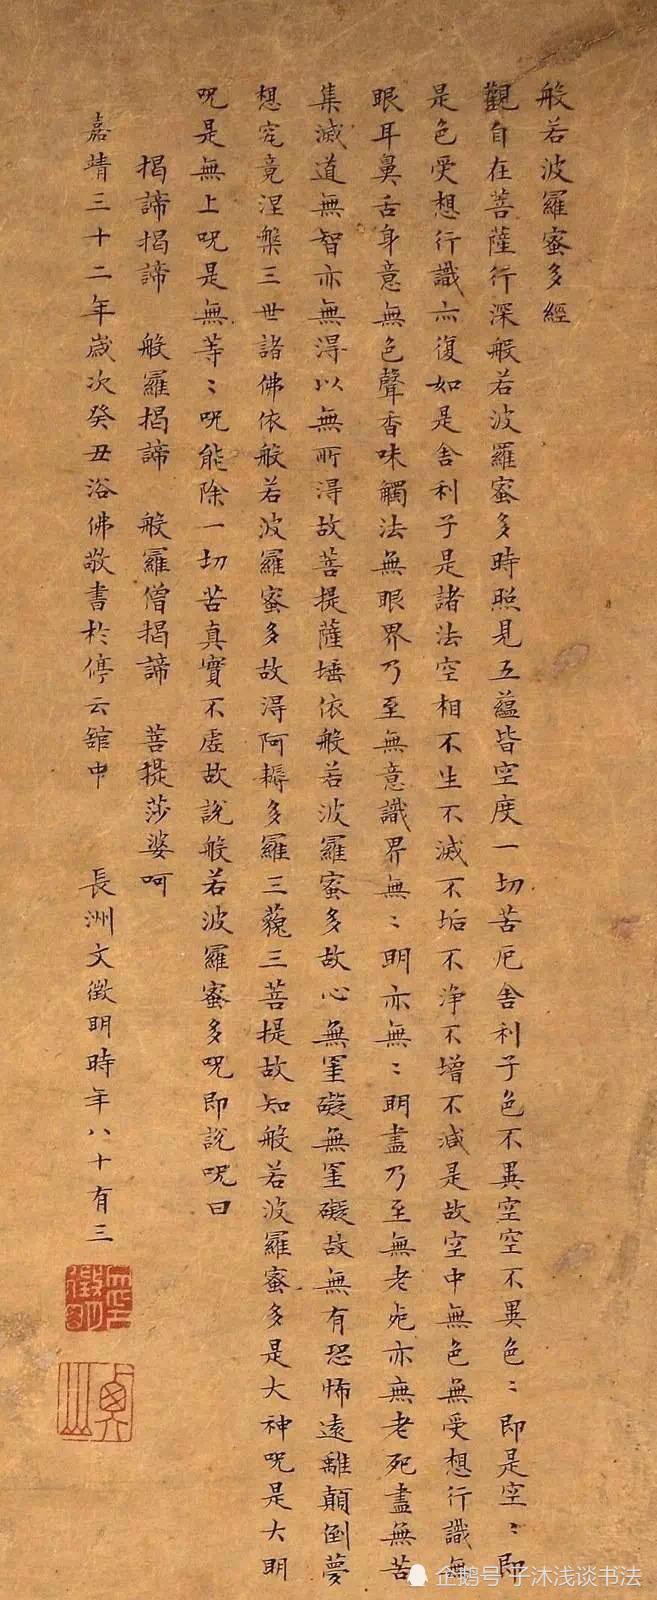 般若波羅蜜多經
觀自在菩薩行深般若波羅蜜多時照見五蘊皆空度一切苦厄舍利子色不異空空不異色〻即是空〻即
是色受想行識亦復如是舍利子是諸法空相不生不滅不垢不淨不增不減是故空中無色無受想行識無
眼耳鼻舌身意無色聲香味觸法無眼界乃至無意識界無〻明亦無〻明盡乃至無老死亦無老死盡無苦
集滅道無智亦無得以無所得故菩提薩埵依般若波羅蜜多故心無罣礙無罣礙故無有恐怖遠離顛倒夢
想究竟涅槃三世諸佛依般若波羅蜜多故得阿耨多羅三藐三菩提故知般若波羅蜜多是大神呪是大明
呪是無上呪是無等〻呪能除一切苦真實不虛故說般若波羅蜜多呪即說呪曰
揭諦揭諦 般羅揭諦 般羅僧揭諦 菩提莎婆呵
嘉靖三十二年歲次癸丑浴佛敬書於停云館中 長洲文徵明時年八十有三
企鹅号 子沐浅谈书法